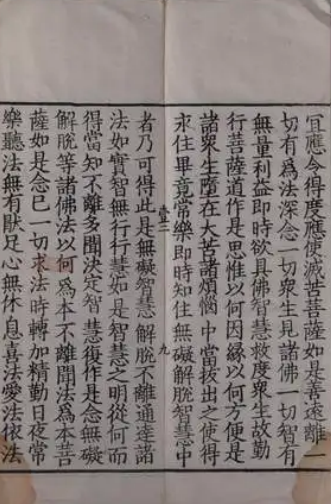 宜應令得度應使滅苦菩薩如是善遠離一
切有爲法深念一切衆生見諸佛一切智有
無量利益即時欲具佛智慧救度衆生故勤
行菩薩道作是思惟以何因緣以何方便是
諸衆生墮在大苦諸煩惱中當拔出之使得
永住畢竟常樂即時知住無礙解脫智慧中
壹三 九
者乃可得此是無礙智慧解脫不離通達諸
法如實智無行行慧如是智慧之明從何而
得當知不離多聞決定智慧復作是念無礙
解脫等諸佛法以何爲本不離聞法爲本菩
薩如是念已一切求法時轉加精勤日夜常
樂聽法無有猒足心無休息喜法愛法依法